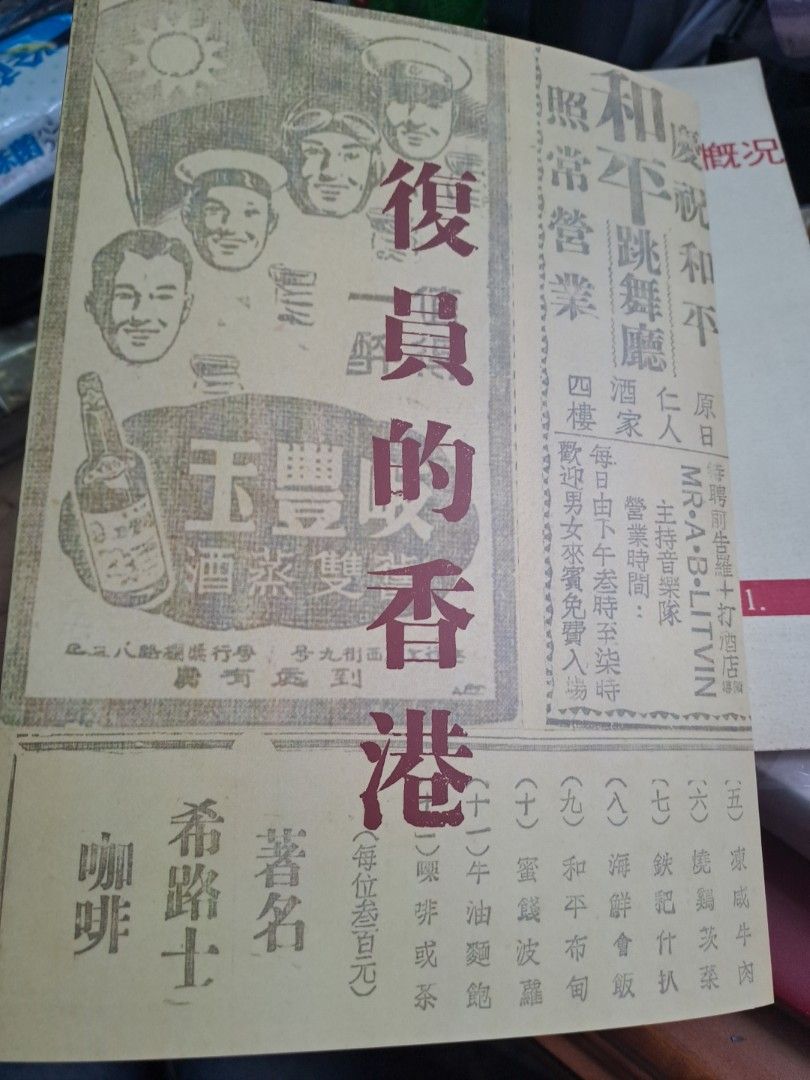 復員的香港
慶祝和平
和平跳舞廳
照常營業
原日
仁人
酒家
四樓
聘前告羅士打酒店
MR·A·B·LITVIN
主持音樂隊
營業時間:
每日由下午叁時至柒時
歡迎男女來賓免費入場
玉豐
雙蒸酒
到送有
(五)凍咸牛肉
(六)燒鷄茨菜
(七)鉄耙什扒
(八)海鮮會飯
(九)和平布甸
(十)蜜餞波蘿
(十一)牛油麵飽
啡或茶
(每位叁百元)
著名
希路士
咖啡
概況
1.